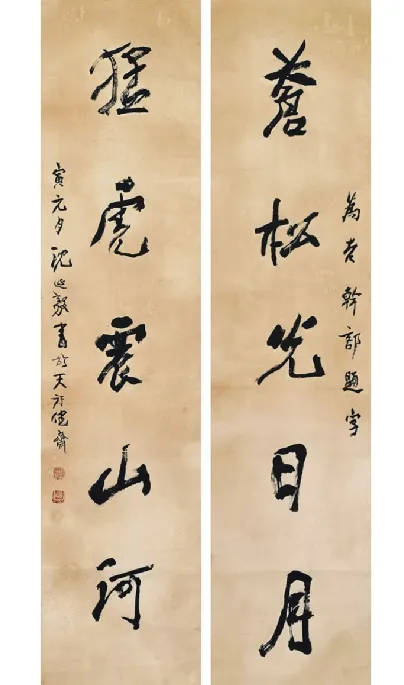 為老幹部題字
蒼松光日月
猛虎震山河
寅元夕沈延毅書於天行健齋